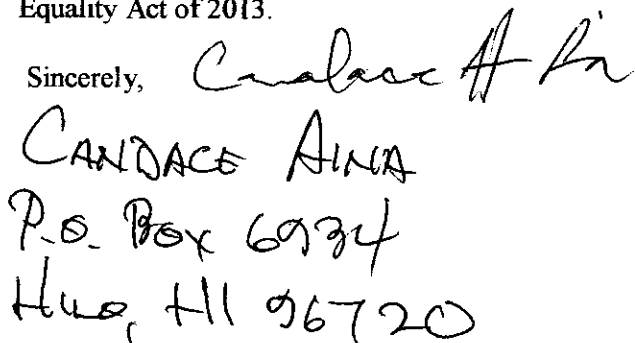 Equality Act of 2013.
Sincerely, Candace A
CANDACE AINA
P.O. Box 6934
Hilo, HI 96720